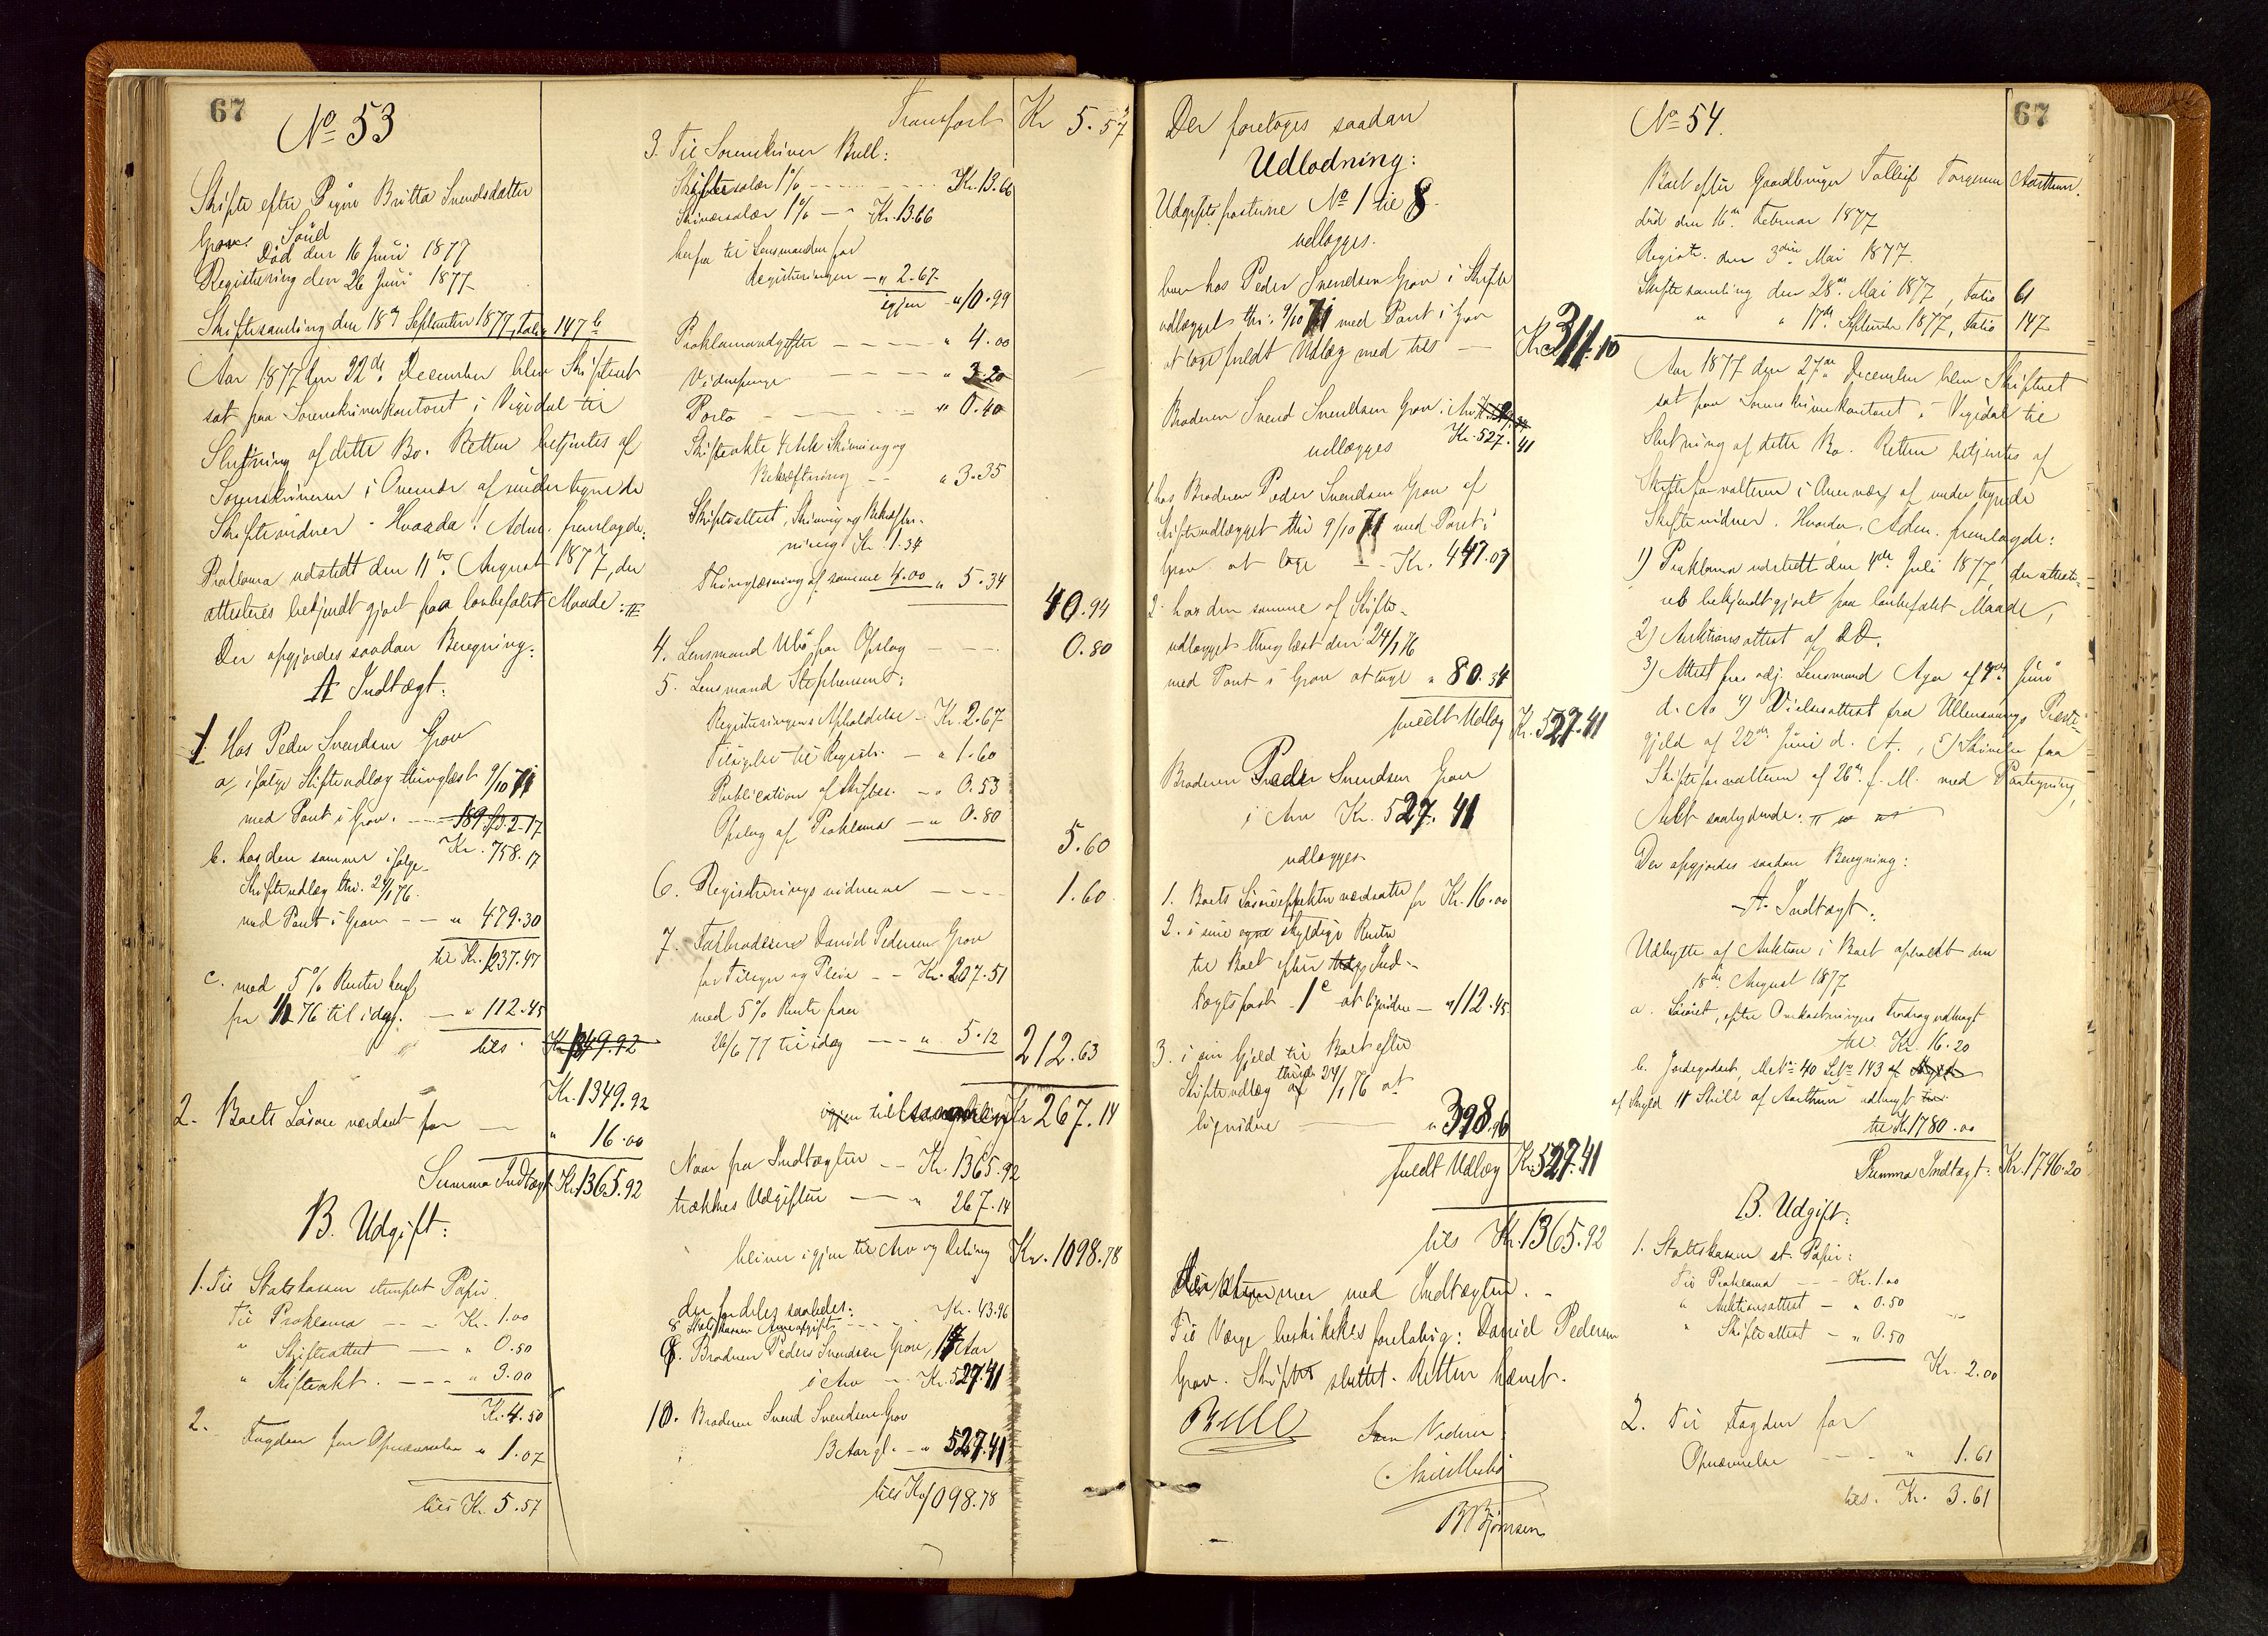 67
No 53
Skifte efter Pigen Britta Svendsdatter
Grov. Sôúd
Död den 16 Juni 1877
Registrering den 26 Juni 1877
Skiftesamling den 18de September 1877, Folio 147 b
Aar 1877 den 22de December blev Skifteret
sat paa Sorenskriverkontoret i Vigedal til
Slutning af dette Bo. Retten betjentes af
Sorenskriveren i Overvær af undertegnede
Skiftevidner. Hvorda! Adm. fremlagde:
Proklama udstedt den 11te August 1877, der
attesteres bekjendtgjort paa lovbefalet Maade:
Der opgjordes saadan Beregning:
A Indtægt:
1. Hos Peder Svendsen Grov
a, ifølge Skifteudlæg thinglæst 9/10 71
med Pant i Grov. — 189 Sp 2-17
Kr. 758.17
b. hos den samme ifølge
Skifteudlæg thi. 24/1 76.
med Pant i Grov — — " 479.30
til Kr. 1237.47
c. med 5% Renter heraf
fra 1/2 76 til idag. — " 112.45
tils. Kr. 1349.92
Kr. 1349.92
2. Boets Løsøre værdsat for — " 16.00
Summa Indtægt Kr. 1365.92
B. Udgift:
1. Til Statskassen stemplet Papir.
Til Proklama — — Kr. 1.00
" Skifteattest — " 0.50
" Skifteakt. — — " 3.00
Kr. 4.50
2. Fogden for Opnævnelse " 1.07
tils Kr. 5.57
Transport Kr 5.57
3. Til Sorenskriver Bull:
Skiftesalær 1% — — Kr. 13.66
Skriversalær 1% — " Kr. 13.66
herfra til Lensmanden for
Registreringen — " 2.67
igjen " 10.99
Proklamaudgifter — — " 4.00
Vidnepenge — — " 3.20
Porto — — " 0.40
Skifteakte 4 Ark Skrivning og
Bekræftning — " 3.35
Skifteattest, Skrivning og Bekræft-
ning Kr. 1.34
Thinglæsning af samme 4.00 " 5.34
40.94
4. Lensmand Ubø for Opslag — — 0.80
5. Lensmand Stephensen:
Registreringens Afholdelse — Kr. 2.67
Tilsigelse til Registr. — " 1.60
Publication af Skiftes. — " 0.53
Opslag af Proklama — " 0.80
5.60
6. Registreringsvidnerne — — 1.60
7. Farbroderen Daniel Pedersen Grov
for Tilsyn og Pleie — — Kr. 207.51
med 5% Rente fra
26/6 77 til idag — — " 5.12
212.63
Kr 267.14
Naar fra Indtægten — — Kr. 1365.92
trækkes Udgiften — — " 267.14
bliver igjen til Arv og Deling Kr. 1098.78
der fordeles saaledes:
8 Statskassen Arveafgift — — Kr. 43.96
9. Broderen Peder Svendsen Grov, 17 Aar
i Arv — Kr. 527.41
10. Broderen Svend Svendsen Grov
13 Aar gl. — " 527.41
tils Kr. 1098.78
Der foretoges saadan
Udlodning:
Udgiftsposterne No 1 til 8.
udlægges.
hver hos Peder Svendsen Grov i Skifte
udlægget thi: 9/10 71 med Pant i Grov
at tage fuldt Udlæg med tils — Kr 311.10
Broderen Svend Svendsen Grov i Arv
Kr. 527.41
udlægges
1. hos Broderen Peder Svendsen Grov af
Skifteudlægget thi 9/10 71 med Pant i
Grov at tage — — Kr. 447.07
2. hos den samme af Skifte-
udlægget thinglæst den 24/1 76
med Pant i Grov at tage " 80.34
fuldt Udlæg Kr. 527.41
Broderen Peder Svendsen Grov
i Arv Kr. 527.41
udlægges
1. Boets Løsøreeffekter værdsatte for Kr. 16.00
2. i sine egne skyldige Renter
til Boet efter Ind-
tægtspost 1 c at liqvidere — " 112.45
3. i sin Gjeld til Boet efter
Skifteudlæg thingl. 24/1 76 at
liqvidere — " 398.96
fuldt Udlæg Kr. 527.41
tils Kr. 1365.92
der stemmer med Indtægten. –
Til Værge beskikkes foreløbig: Daniel Pedersen
Grov. Skiftet sluttet. Retten hævet.
Bull
Som Vidner:
B Bjørnsen
67
No 54.
Boet efter Gaardbruger Tolleif Torgersen Aarthun.
død den 16de Februar 1877
Registr. den 3die Mai 1877.
Skiftesamling den 28de Mai 1877, Folio 61
" " 17de September 1877, Folio 147
Aar 1877 den 27de December blev Skifteret
sat paa Sorenskriverkontoret i Vigedal til
Slutning af dette Bo. Retten betjentes af
Skifteforvalteren i Overvær af undertegnede
Skiftevidner. Hvorda. Adm. fremlagde:
1) Proklama udstedt den 4de Juli 1877, der atteste-
res bekjendtgjort paa lovbefalet Maade,
2) Auktionsattest af D.D.
3) Attest fra adj. Lensmand Aga af 4de Juni
d. A. 4) Vielsesattest fra Ullensvangs Præste-
gjeld af 22de Juni d. A., 5) Skrivelse fra
Skifteforvalteren af 26de f. M. med Paategning,
Alt saalydende:
Der opgjordes saadan Beregning:
A. Indtægt:
Udbytte af Auktion i Boet afholdt den
18de August 1877
a. Løsøret, efter Omkostningers Fradrag udbragt
til Kr. 16.20
b. Jordegodset, M.No 40 L.No 143
af Skyld 11 Skill af Aarthun udbragt
til Kr. 1780.00
Summa Indtægt: Kr. 1796.20
B. Udgift:
1. Statskassen st. Papir:
Til Proklama — — Kr. 1.00
" Auktionsattest — " 0.50
" Skifteattest — " 0.50
Kr. 2.00
2. Til Fogden for
Opnævnelse — — " 1.61
tils. Kr. 3.61